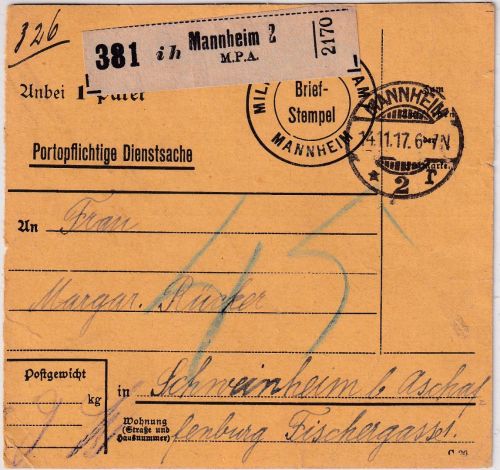 326
381 ih Mannheim 2
M.P.A.
2170
Anbei 1 Paket
Brief-
Stempel
MANNHEIM
MANNHEIM
14.11.17. 6-7N
* 2 r
Portopflichtige Dienstsache
An Frau
Margar. Rücker
45
Postgewicht
kg
in Schweinheim b. Aschaf=
Wohnung
(Straße und
Hausnummer)
lenburg Fischergasse 1.
C. 20